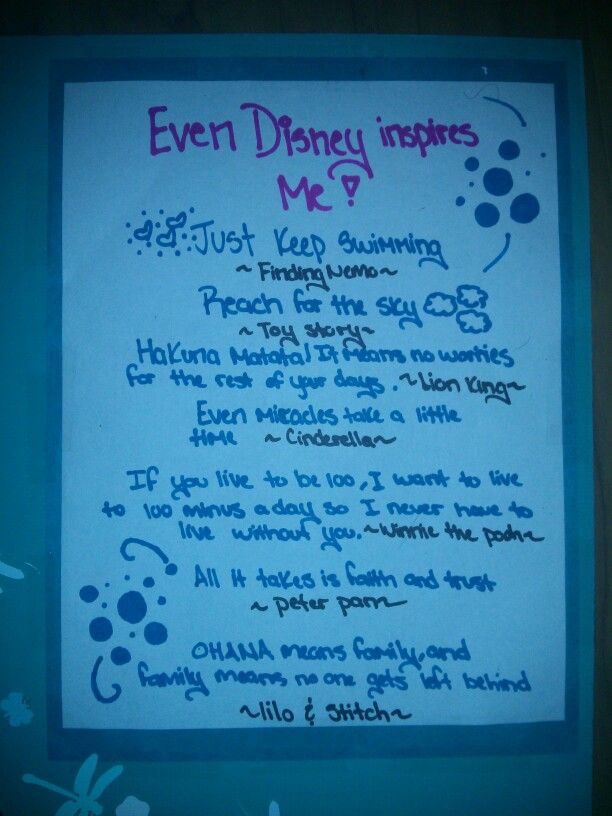 Even Disney inspires
Me!
Just Keep Swimming
~Finding Nemo~
Reach for the sky
~Toy Story~
Hakuna Matata! It means no worries
for the rest of your days. ~Lion King~
Even Miracles take a little
time ~Cinderella~
If you live to be 100, I want to live
to 100 minus a day so I never have to
live without you. ~Winnie the pooh~
All it takes is faith and trust
~peter pan~
OHANA means family, and
family means no one gets left behind
~lilo & Stitch~